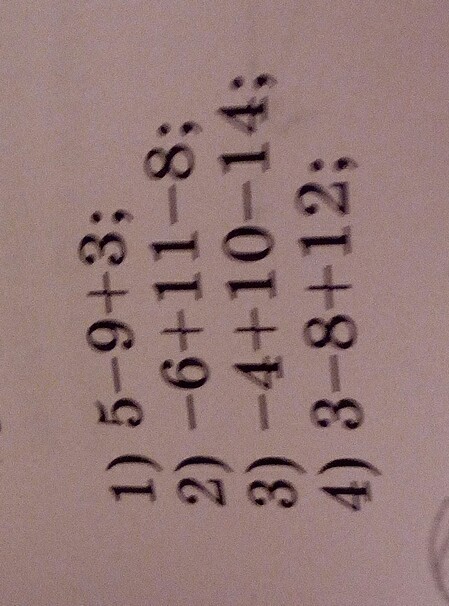 1) 5−9+3;
2) −6+11−8;
3) −4+10−14;
4) 3−8+12;